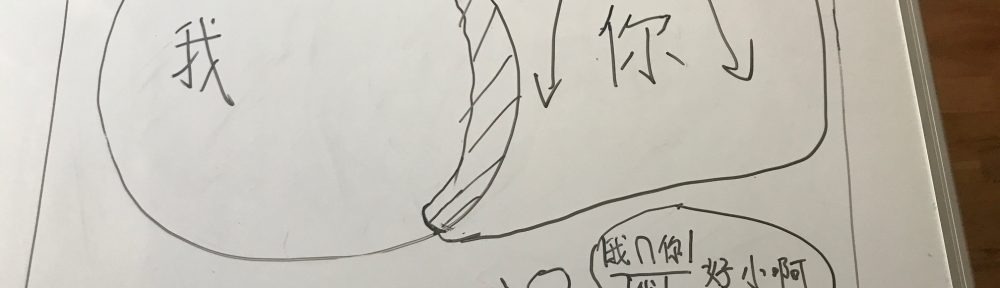 我
你
|我∩你|
好小啊